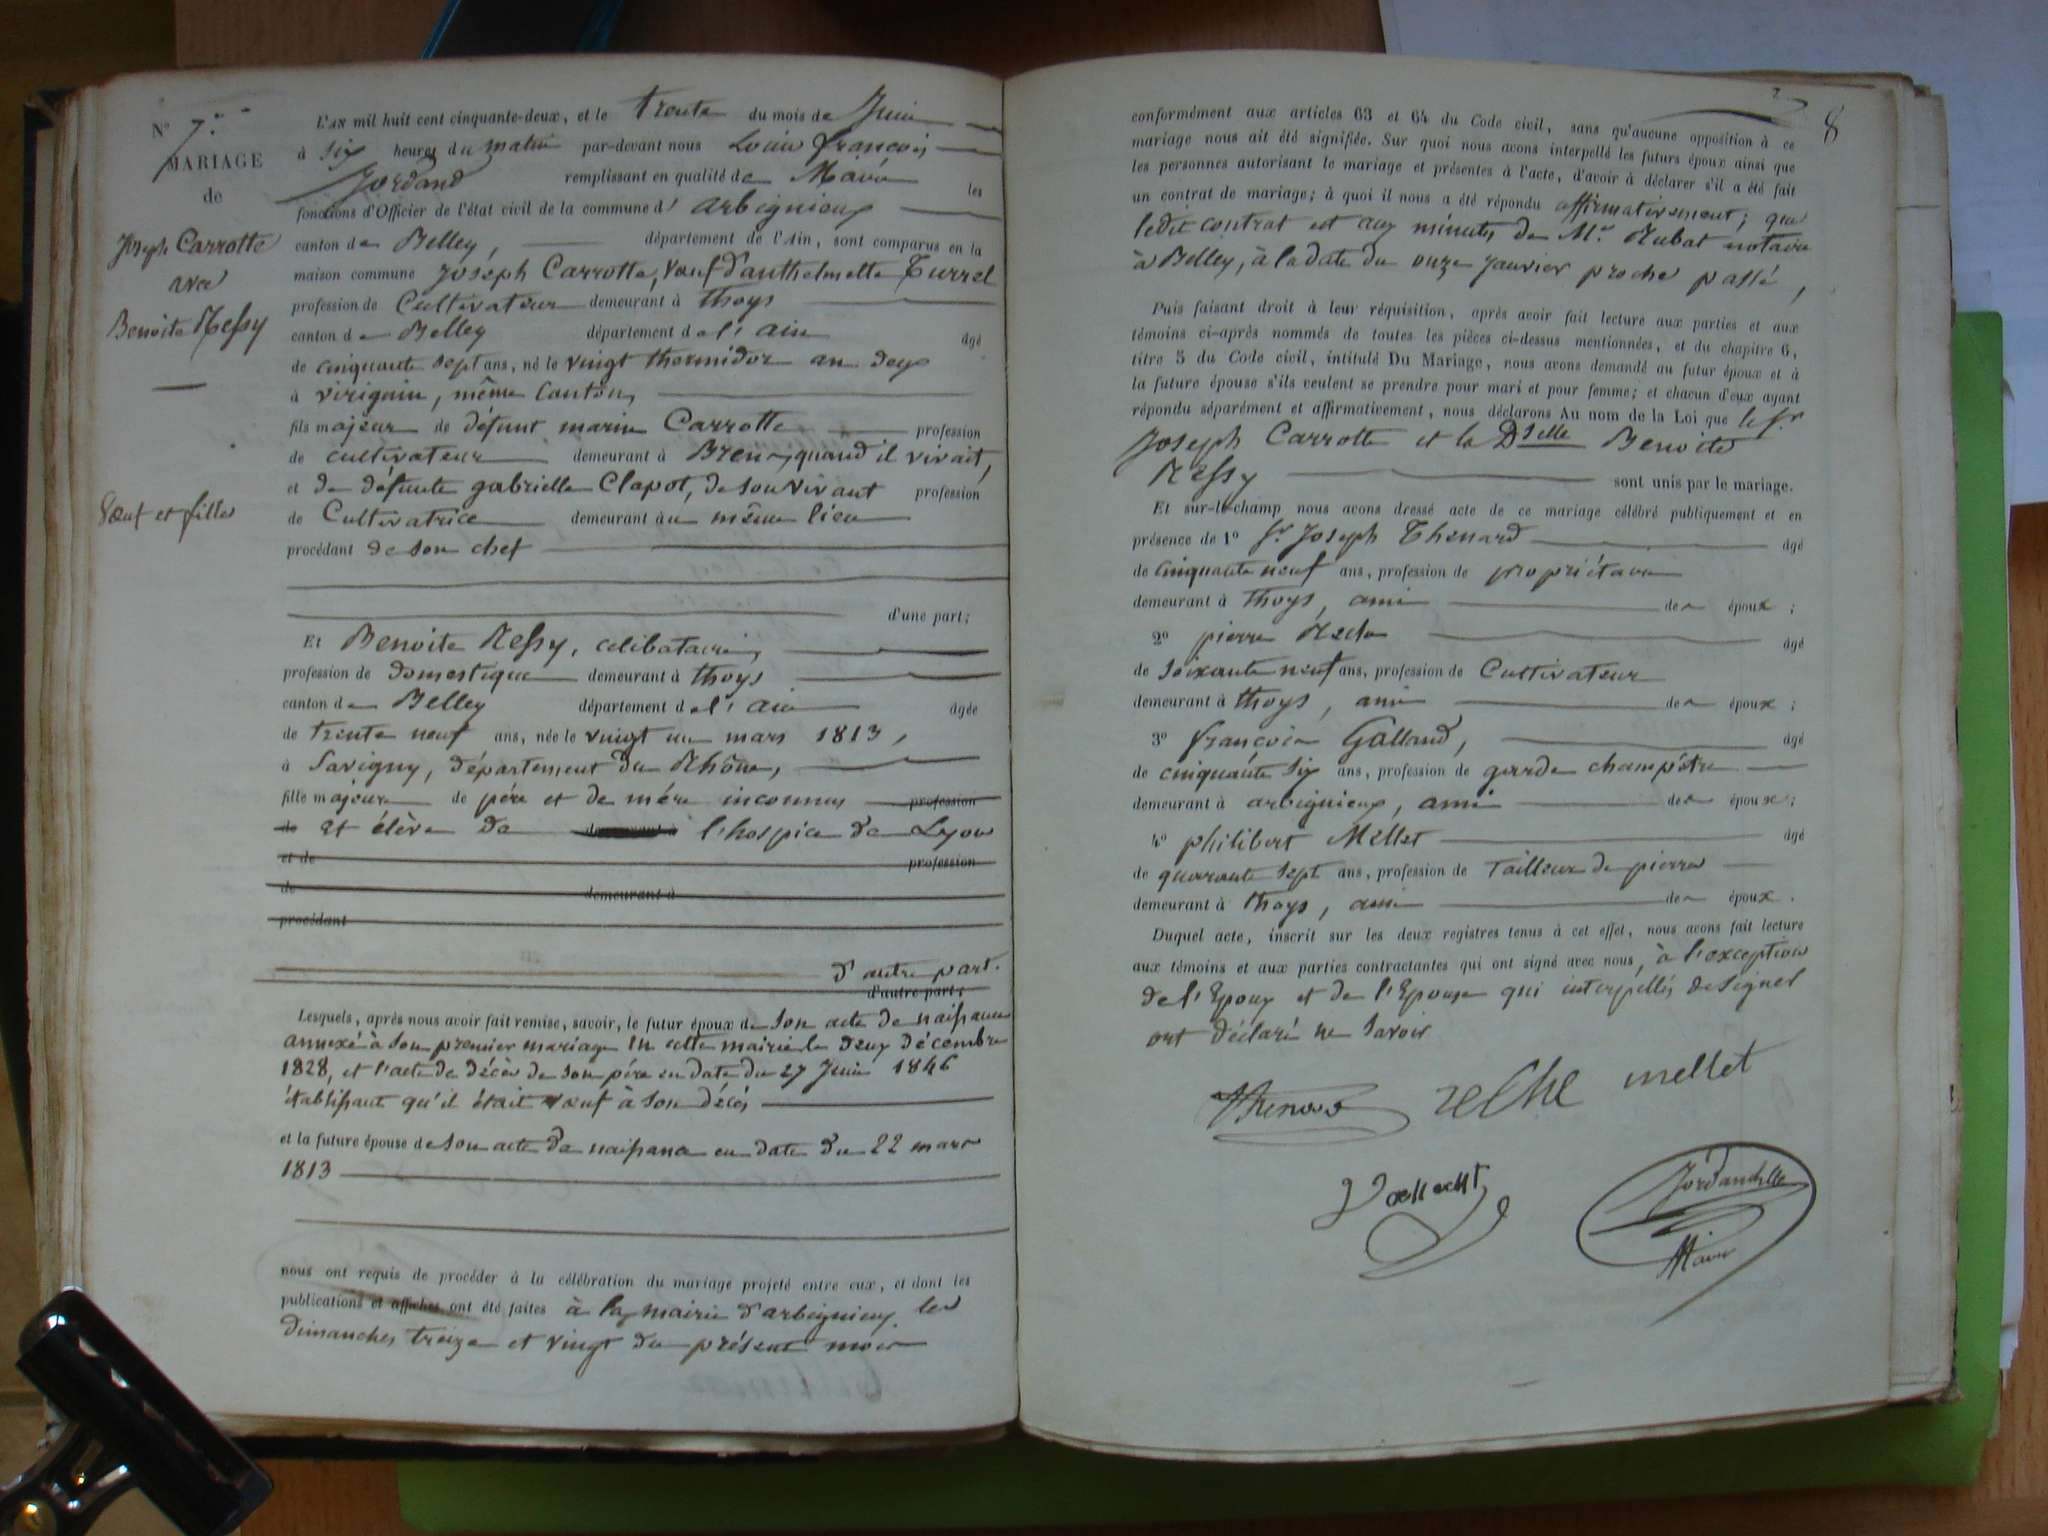 N° 7.
MARIAGE
de
Joseph Carrotte
avec
Benoite Ressy
Vœuf et fille
L'AN mil huit cent cinquante-deux, et le trente du mois de Juin
à six heures du matin par-devant nous Louis françois
Jordand remplissant en qualité de Maire les
fonctions d'Officier de l'état civil de la commune d' arbignieux
canton de Belley, département de l'Ain, sont comparus en la
maison commune Joseph Carrotte, vœuf d'anthelmette Turrel
profession de Cultivateur demeurant à thoys
canton de Belley département de l' ain âgé
de cinquante sept ans, né le vingt thermidor an deux
à virignin, même Canton,
fils majeur de défunt marin Carrotte profession
de cultivateur demeurant à Bren, quand il vivait,
et de défunte gabrielle Clapot, de son vivant profession
de Cultivatrice demeurant au même lieu
procédant de son chef
d'une part;
Et Benoite Ressy, celibataire,
profession de domestique demeurant à thoys
canton de Belley département de l' ain âgée
de trente neuf ans, née le vingt un mars 1813,
à Savigny, département du Rhône,
fille majeure de père et de mère inconnus profession
de et élève de demeurant à l'hospice de Lyon
et de profession
de demeurant à
procédant
d'autre part.
d'autre part;
Lesquels, après nous avoir fait remise, savoir, le futur époux de son acte de naissance
annexé à son premier mariage en cette mairie le deux décembre
1828, et l'acte de décès de son père en date du 27 Juin 1846
établissant qu'il était vœuf à son décès
et la future épouse de son acte de naissance en date du 22 mars
1813
nous ont requis de procéder à la célébration du mariage projeté entre eux, et dont les
publications et affiches ont été faites à la mairie d'arbignieux les
dimanches treize et vingt du présent mois
8
conformément aux articles 63 et 64 du Code civil, sans qu'aucune opposition à ce
mariage nous ait été signifiée. Sur quoi nous avons interpellé les futurs époux ainsi que
les personnes autorisant le mariage et présentes à l'acte, d'avoir à déclarer s'il a été fait
un contrat de mariage; à quoi il nous a été répondu affirmativement; que
ledit contrat est aux minutes de Mr. Rubat notaire
à Belley, à la date du onze Janvier proche passé,
Puis faisant droit à leur réquisition, après avoir fait lecture aux parties et aux
témoins ci-après nommés de toutes les pièces ci-dessus mentionnées, et du chapitre 6,
titre 5 du Code civil, intitulé Du Mariage, nous avons demandé au futur époux et à
la future épouse s'ils veulent se prendre pour mari et pour femme; et chacun d'eux ayant
répondu séparément et affirmativement, nous déclarons Au nom de la Loi que le Sr
Joseph Carrotte et la Dselle Benoite
Ressy sont unis par le mariage.
Et sur-le-champ nous avons dressé acte de ce mariage célébré publiquement et en
présence de 1° Sr. Joseph Thenard âgé
de cinquante neuf ans, profession de propriétaire
demeurant à thoys, ami des époux;
2° pierre Reche âgé
de soixante neuf ans, profession de Cultivateur
demeurant à thoys, ami des époux;
3° françois Galland, âgé
de cinquante six ans, profession de garde champêtre
demeurant à arbignieux, ami des époux;
4° philibert Mellet âgé
de quarante sept ans, profession de tailleur de pierres
demeurant à thoys, ami des époux.
Duquel acte, inscrit sur les deux registres tenus à cet effet, nous avons fait lecture
aux témoins et aux parties contractantes qui ont signé avec nous, à l'exception
de l'Epoux et de l'Epouse qui interpellés de signer
ont déclaré ne savoir
Thenard reche mellet
Maire